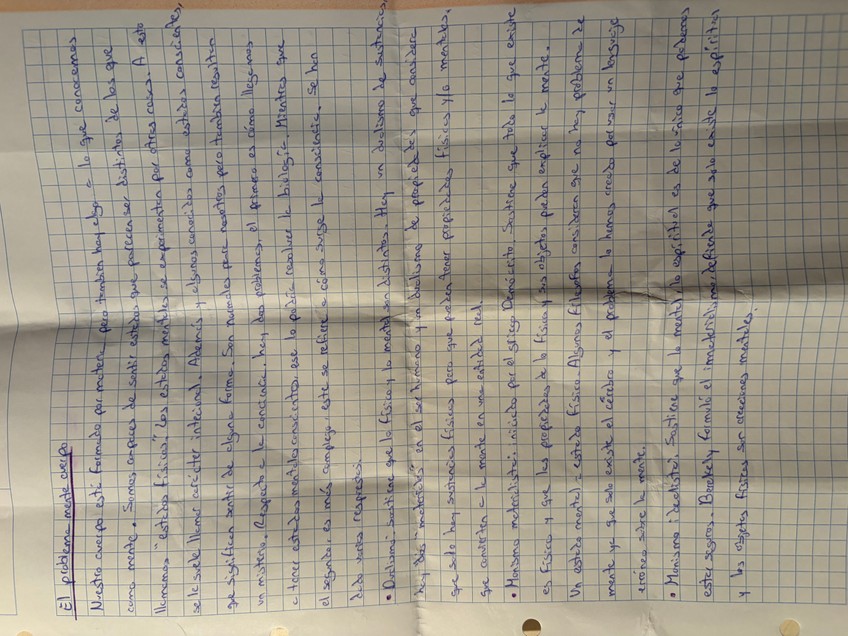 El problema mente cuerpo
Nuestro cuerpo está formado por materia, pero también hay algo a lo que conocemos
como mente. Somos capaces de sentir estados que parecen ser distintos de los que
llamamos "estados físicos". Los estados mentales se experimentan por otras cosas. A esto
se le suele llamar carácter intencional. Además y algunos conocidos como estados conscientes,
que significan sentir de alguna forma. Son normales para nosotros pero también resultan
un misterio. Respecto a la conciencia, hay dos problemas, el primero es cómo llegamos
a tener estados mentales conscientes, ese lo podría resolver la biología. Mientras que
el segundo, es más complejo, este se refiere a cómo surge la consciencia. Se han
dado varias respuestas.
• Dualismo: sostiene que lo físico y lo mental son distintos. Hay un dualismo de sustancias,
hay dos "materiales" en el ser humano y un dualismo de propiedades que considera
que solo hay sustancias físicas pero que pueden tener propiedades físicas y/o mentales,
que convierten a la mente en una entidad real.
• Monismo materialista: iniciado por el griego Demócrito. Sostiene que todo lo que existe
es físico y que las propiedades de lo físico y sus objetos pueden explicar la mente.
Un estado mental = estado físico. Algunos filósofos consideran que no hay problema de
mente ya que solo existe el cerebro y el problema lo hemos creado por usar un lenguaje
erróneo sobre la mente.
• Monismo idealista: Sostiene que lo mental, lo espiritual es de lo único que podemos
estar seguros. Berckely formuló el inmaterialismo, defiende que solo existe lo espiritual
y los objetos físicos son creaciones mentales.